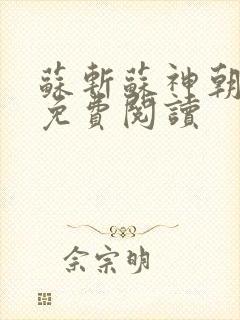 蘇斬蘇神朝
免費閱讀
佘宗明